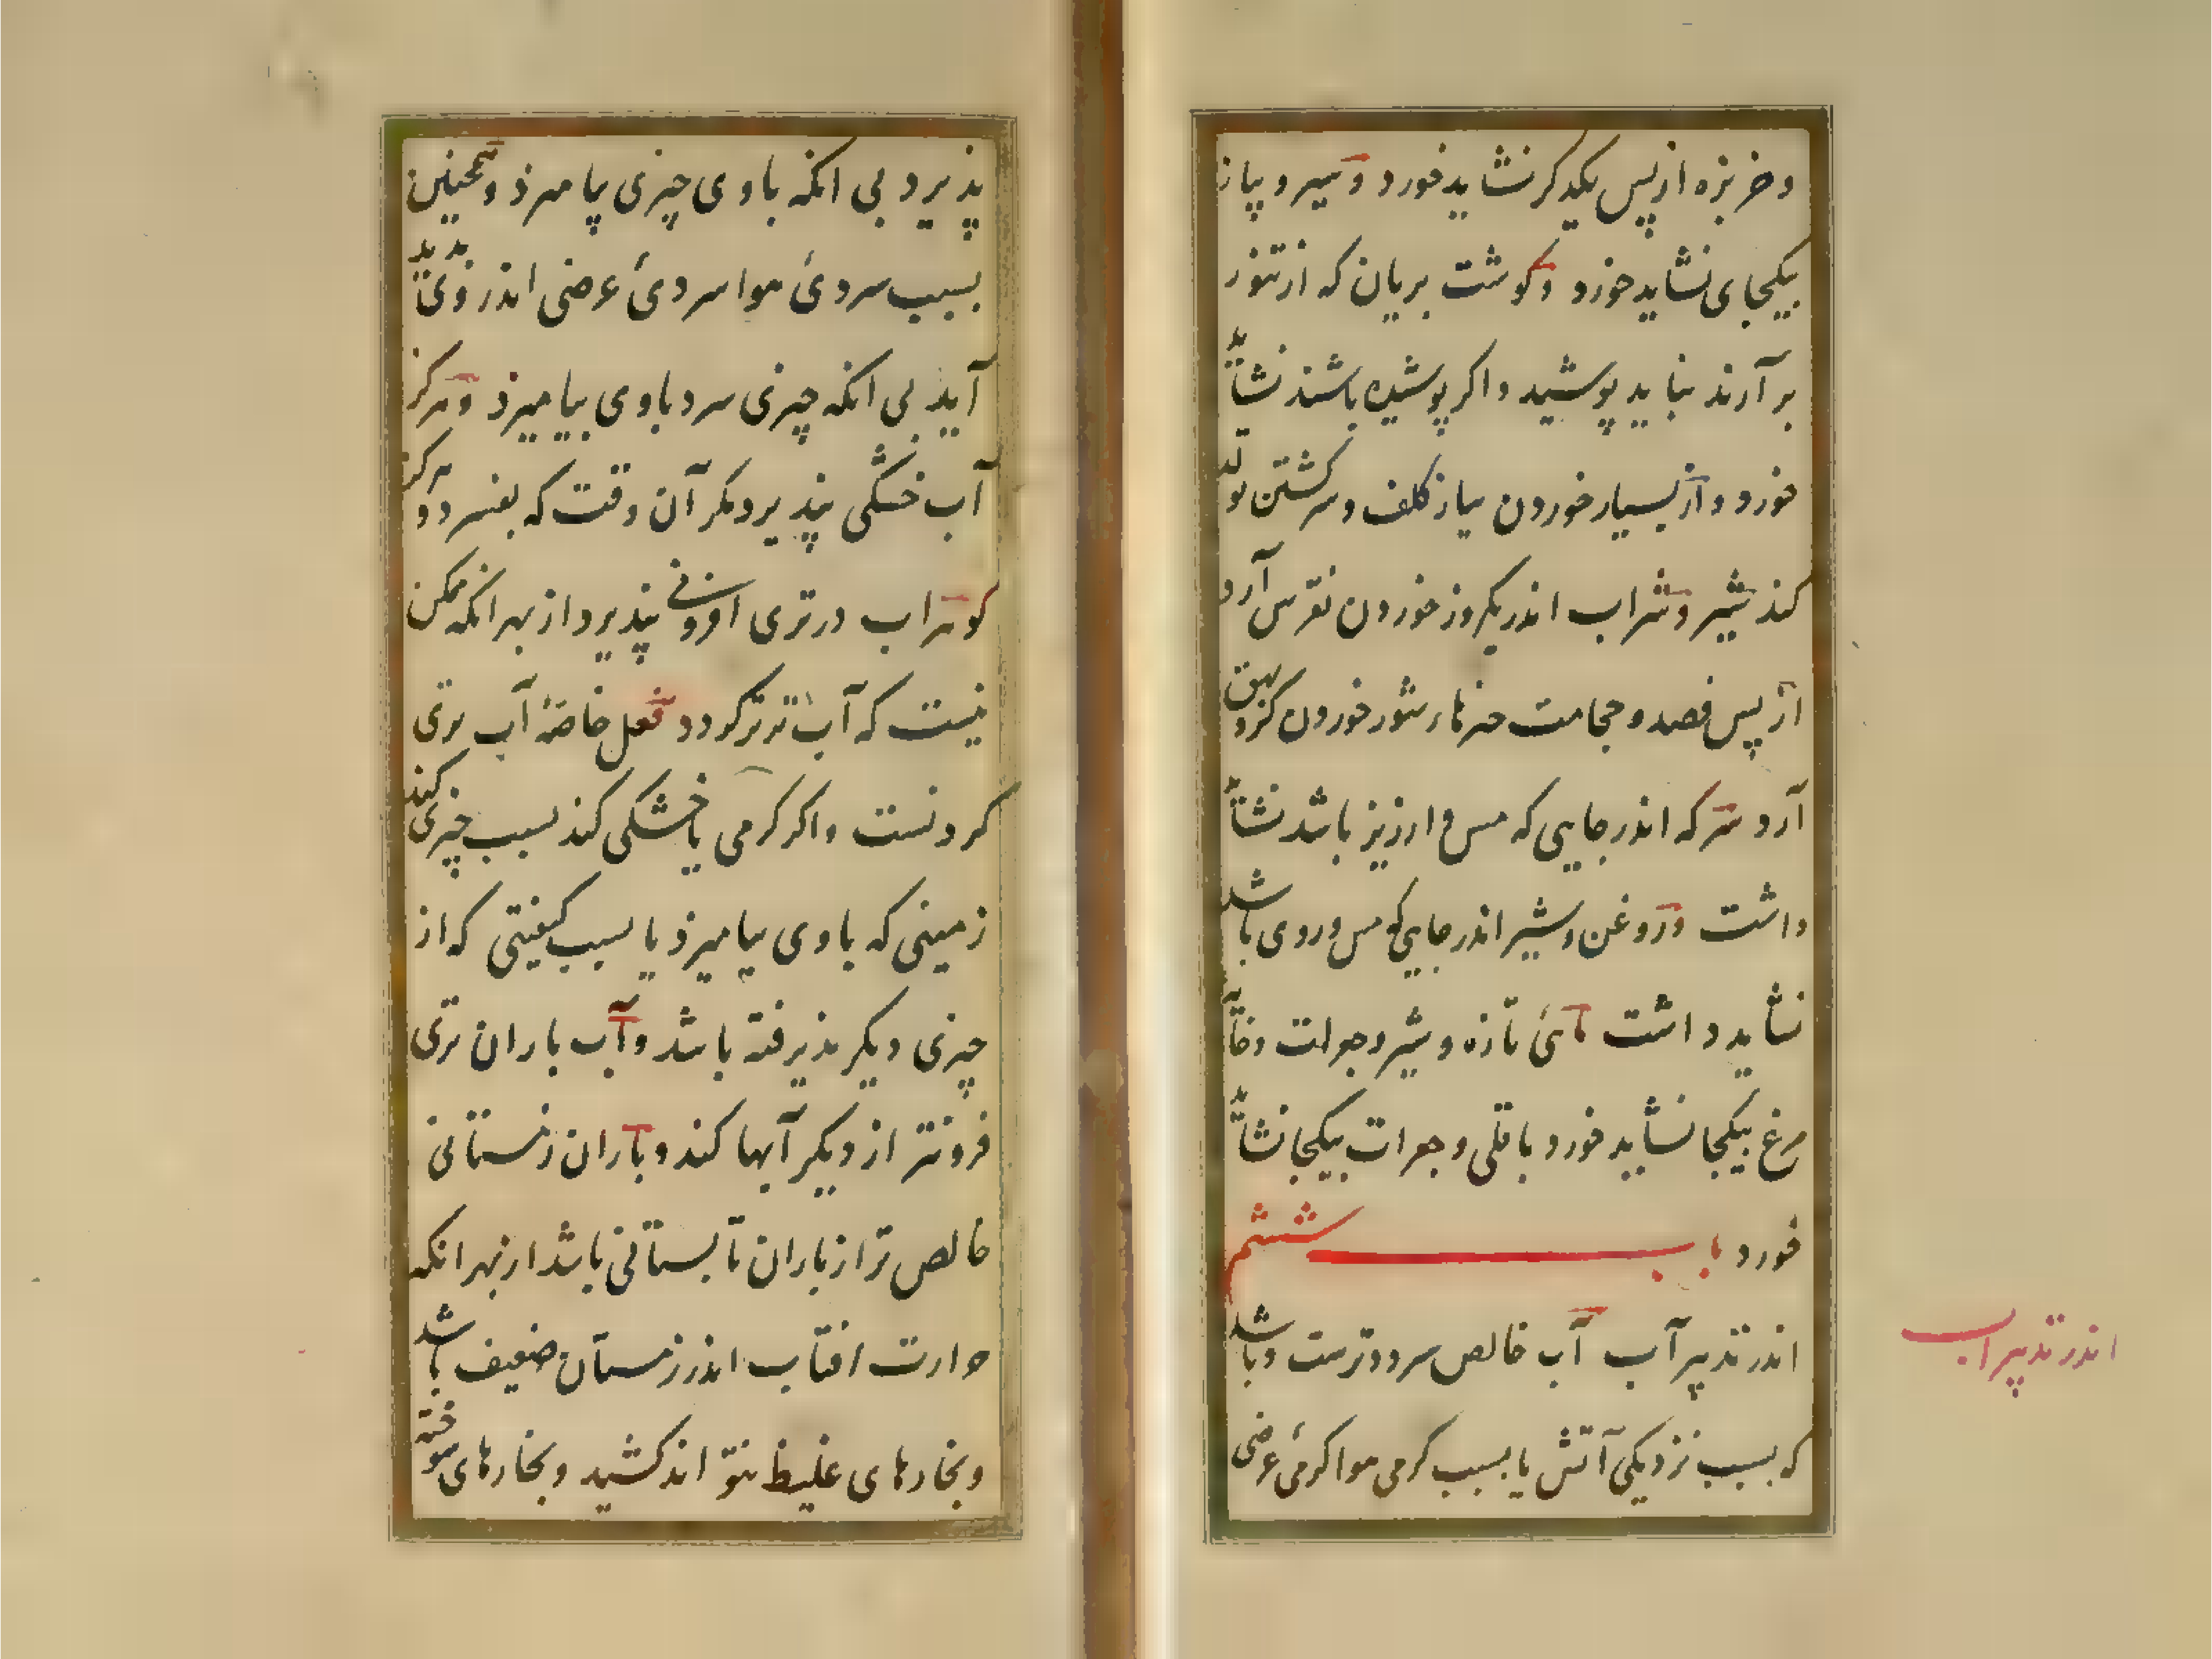 و خربزه از پس یکدکر نشاید خورد و سیر و پیاز
بیکجای نشاید خورد و کوشت بریان که از تنور
برآرند نباید پوشید و اکر پوشیده باشند نشاید
خورد و از بسیار خوردن پیاز کلف و سرکشتن تولد
کند شیر و شراب اندر یکروز خوردن نقرس آرد
از پس فصد و حجامت جیزهاء شور خوردن کر و بهق
آرد سرکه اندر جایی که مس و ارزیز باشد نشاید
داشت و روغن و شیر اندر جایی که مس و روی باشد
نشاید داشت ماهیٔ تازه و شیر و جوات و خایه
مرغ بیکجا نشاید خورد باقلی و جوات بیکجا نشاید
خورد باب ششم
اندر تدبیر آب آب خالص سرد و ترست و باشد
که بسبب نزدیکی آتش یا بسبب کرمی هوا کرمیٔ عرضی
اندر تدبیر اب
پذیرد بی انکه باوی چیزی بیامیزد و همچنین
بسبب سردیٔ هوا سردیٔ عرضی اندر وی پدید
آید بی انکه چیزی سرد باوی بیامیزد و هرکز
آب خشکی نپذیرد مکر آن وقت که بفسرد و هرکز
کوهر اب در تری افزونی نپذیرد از بهر انکه ممکن
نیست که آب تر تر کردد و فعل خاصهٔ آب تری
کردنست و اکر کرمی یا خشکی کند بسبب چیزی کند
زمینی که باوی بیامیزد یا بسبب کیفیتی که از
چیزی دیکر پذیرفته باشد و آب باران تری
فزونتر از دیکر آبها کند و باران زمستانی
خالص تر از باران تابستانی باشد از بهر انکه
حرارت افتاب اندر زمستان ضعیف باشد
و بخارهای غلیظ نتواند کشید و بخارهای سوخته